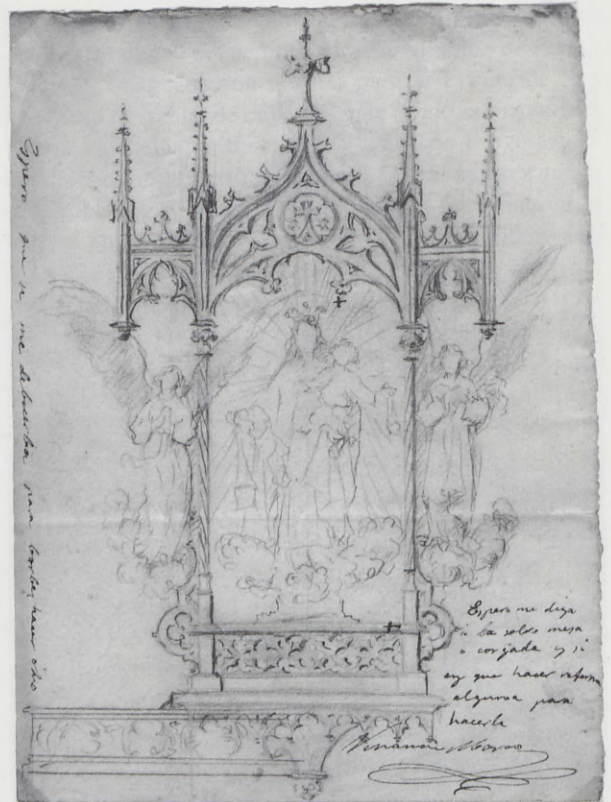 Espero que se me debuelba para poder hacer otro
Espero me diga
a la sobre mesa
o corjada y si
ay que hacer reforma
alguna para
hacerla